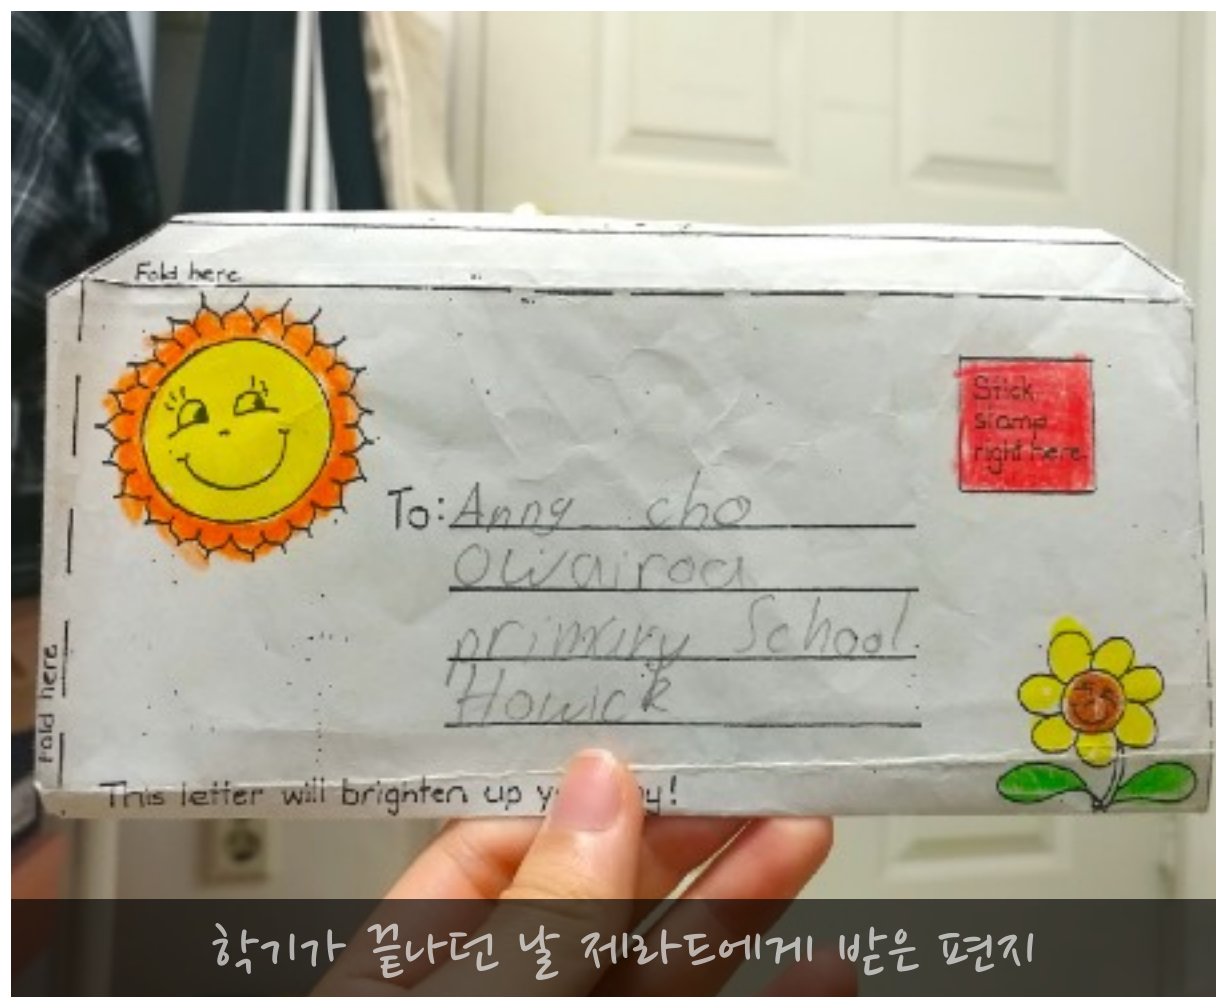 Fold here
Stick
stamp
right here.
To: Anng cho
Owairoa
primary School
Howick
Fold here
This letter will brighten up
학기가 끝나던 날 제라드에게 받은 편지